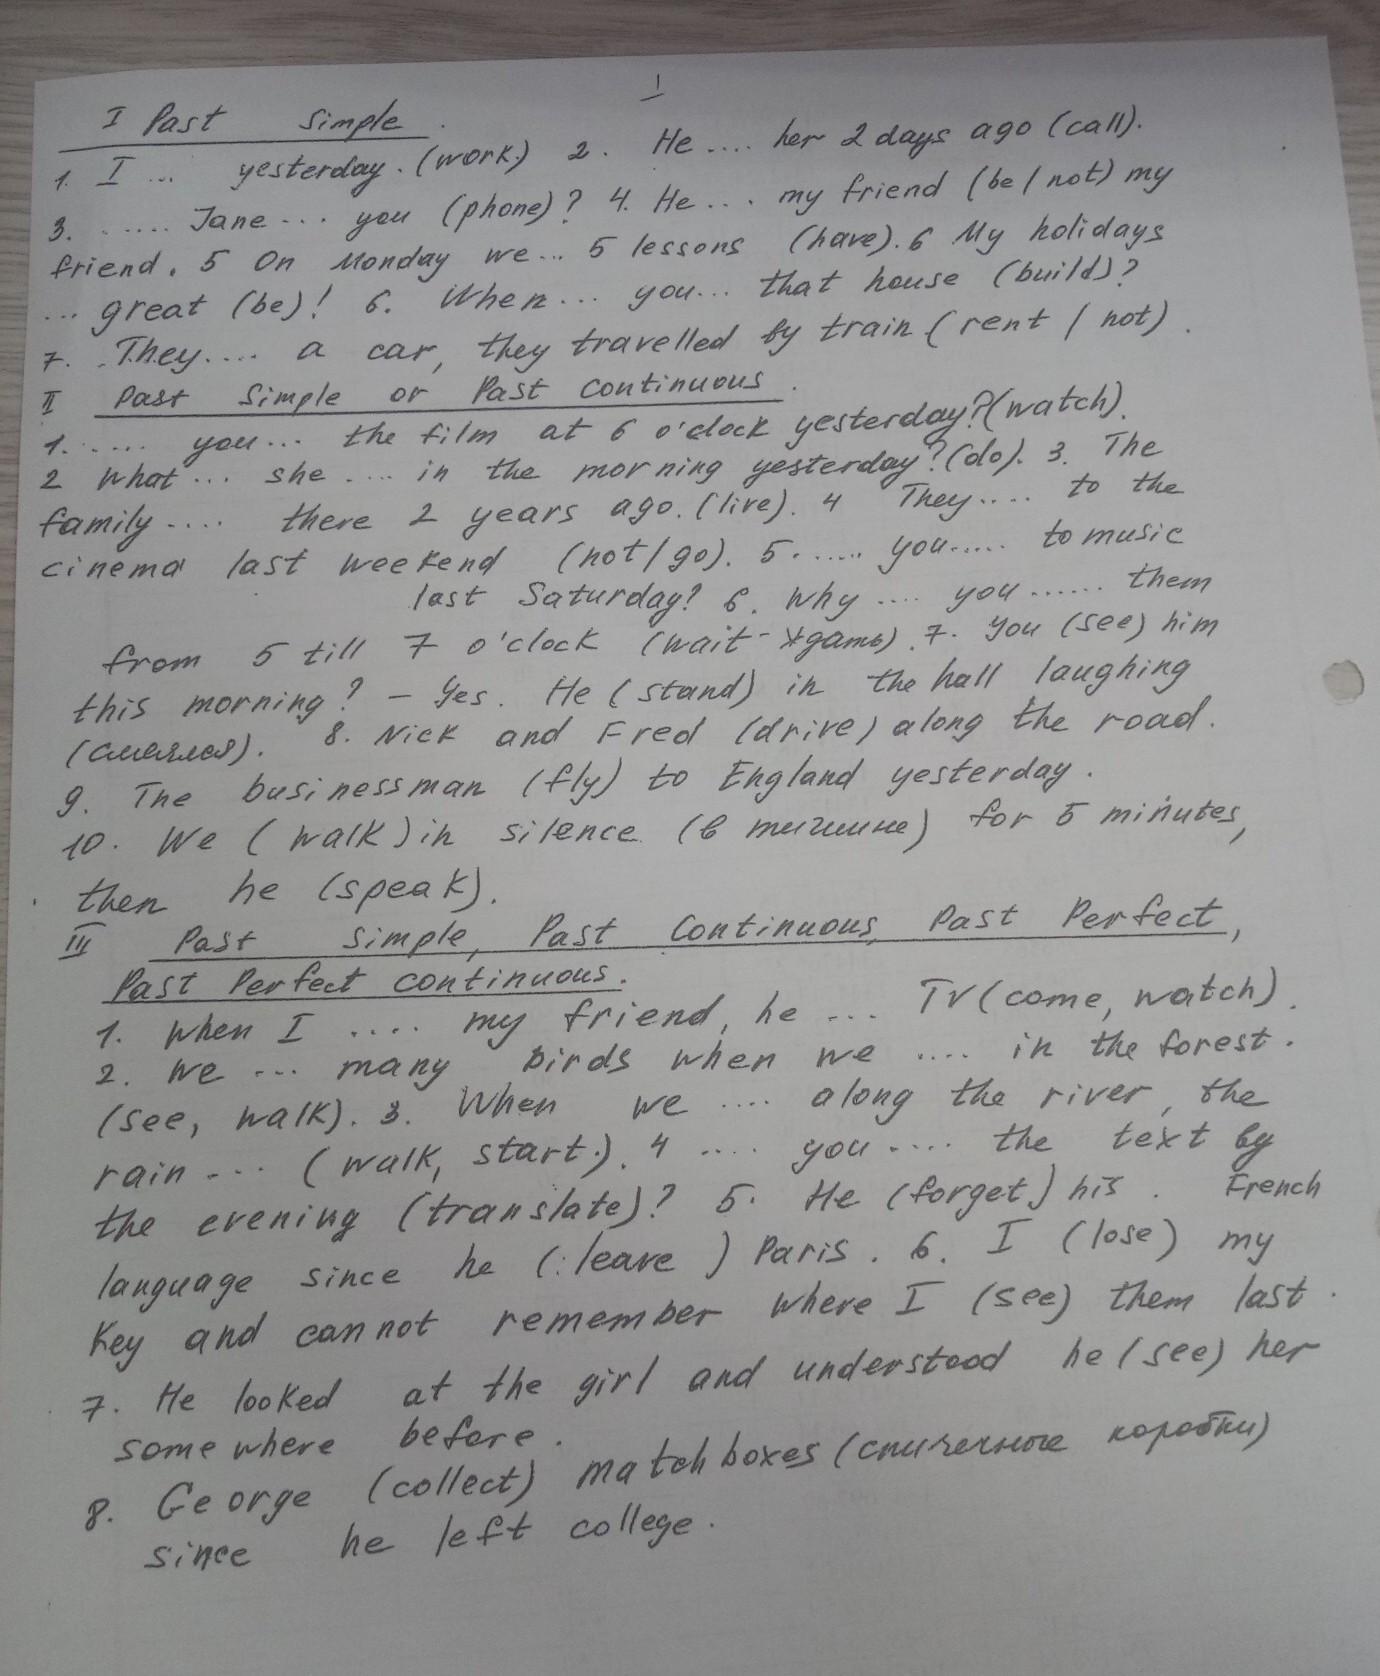 1
I Past Simple.
1. I ... yesterday. (work) 2. He .... her 2 days ago (call).
3. ...... Jane ... you (phone)? 4. He ... my friend (be / not) my
friend. 5 On Monday we... 5 lessons (have). 6 My holidays
... great (be)! 6. When... you... that house (build)?
7. They.... a car, they travelled by train (rent / not).
II Past Simple or Past Continuous.
1. ..... you... the film at 6 o'clock yesterday? (watch).
2 What ... she .... in the morning yesterday? (do). 3. The
family .... there 2 years ago. (live). 4 They.... to the
cinema last weekend (not/go). 5. ..... you..... to music
last Saturday? 6. Why .... you ...... them
from 5 till 7 o'clock (wait - ждать). 7. You (see) him
this morning? - Yes. He (stand) in the hall laughing
(смеялся). 8. Nick and Fred (drive) along the road.
9. The businessman (fly) to England yesterday.
10. We (walk) in silence (в тишине) for 5 minutes,
then he (speak).
III Past Simple, Past Continuous, Past Perfect,
Past Perfect continuous.
1. When I .... my friend, he ... TV (come, watch).
2. We ... many birds when we .... in the forest.
(see, walk). 3. When we .... along the river, the
rain .... (walk, start.). 4 .... you .... the text by
the evening (translate)? 5. He (forget) his. French
language since he (leave) Paris. 6. I (lose) my
key and can not remember where I (see) them last.
7. He looked at the girl and understood he (see) her
somewhere before.
8. George (collect) match boxes (спичечные коробки)
since he left college.